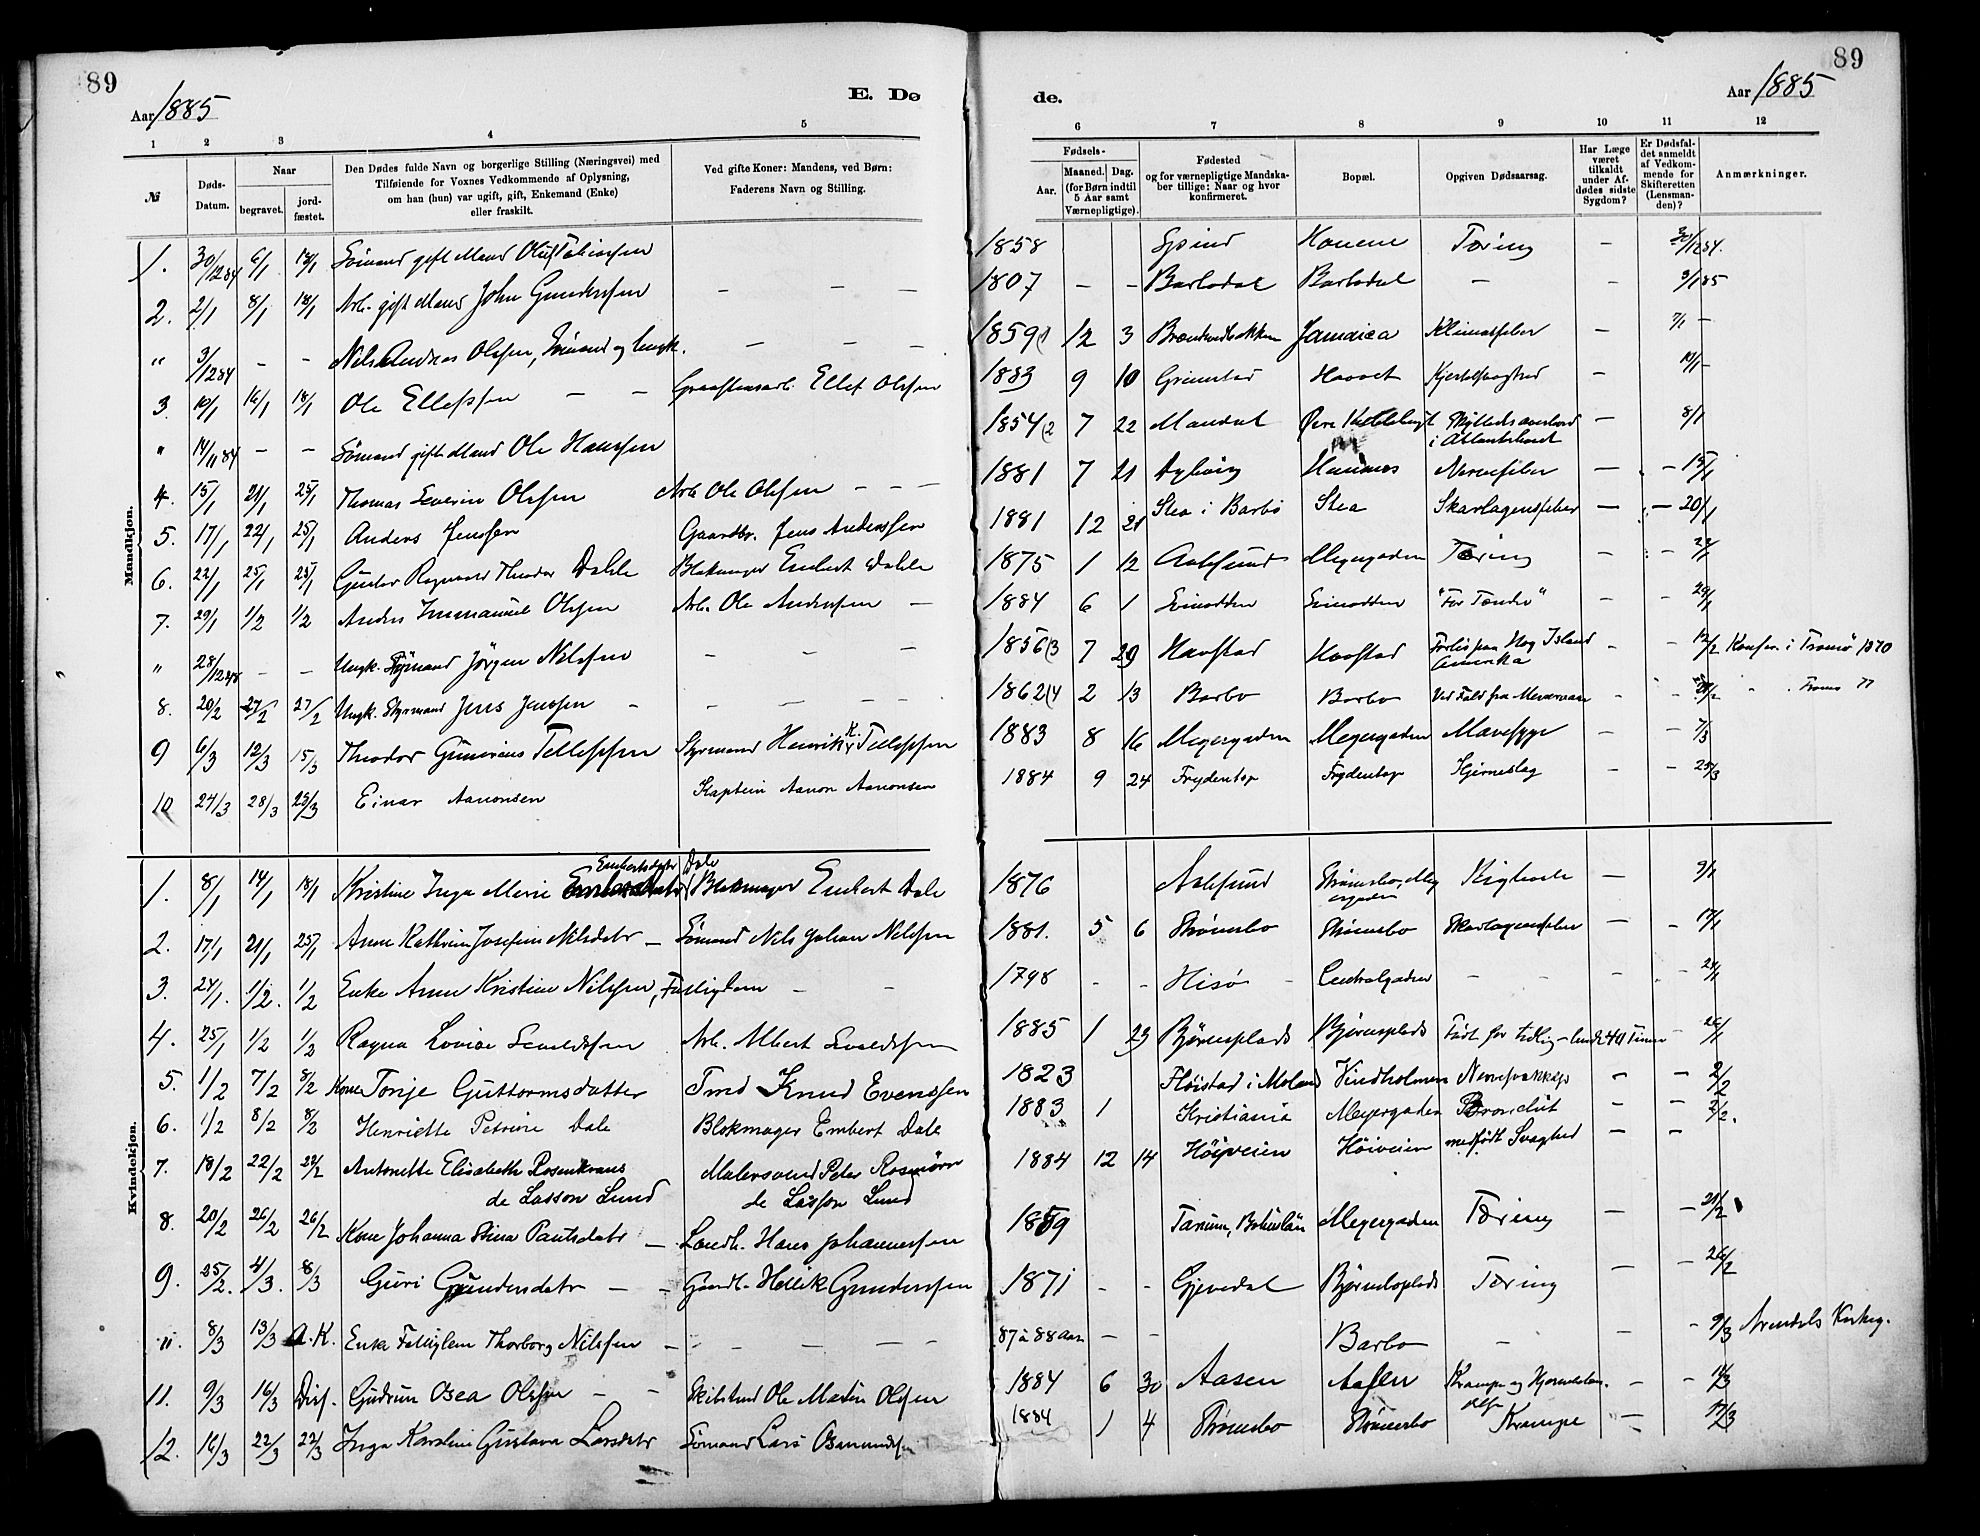 89
Aar 1885
E. Dø
1 2 3 4 5
№
Døds-Datum.
Naar
begravet.
jord-fæstet.
Den Dødes fulde Navn og borgerlige Stilling (Næringsvei) med
Tilføiende for Voxnes Vedkommende af Oplysning,
om han (hun) var ugift, gift, Enkemand (Enke)
eller fraskilt.
Ved gifte Koner: Mandens, ved Børn:
Faderens Navn og Stilling.
Mandkjøn.
1. 30/12 84 6/1 18/1 Sömand gift Mand Oluf Tobiassen
2. 2/1 8/1 18/1 Arb. gift Mand John Gundersen — — —
" 3/12 84 - - Nils Andreas Olssen, Sömand og Ungk. — — —
3. 10/1 16/1 18/1 Ole Ellefssen — — Ellef Olssen
" 14/11 84 - - Sömand gift Mand Ole Hanssen
4. 15/1 21/1 25/1 Thomas Severin Olssen Arb. Ole Olssen — — —
5. 17/1 22/1 25/1 Anders Jenssen Gaardbr. Jens Anderssen
6. 22/1 25/1 25/1 Gustav Ragnvald Theodor Dahle Blokmager Embert Dahle
7. 29/1 1/2 1/2 Anders Immanuel Olssen Arb. Ole Anderssen —
" 28/12 - - Ungk. Sømand Jörgen Nilssen - - -
8. 20/2 27/2 27/2 Ungk. Styrmand Jens Jenssen - - - -
9 6/3 12/3 15/3 Theodor Gunerius Tellefssen Styrmand Henrik K. Tellefssen
10 24/3 28/3 25/3 Einar Aanonsen Kaptein Aanon Aanonsen
Kvindekjøn.
Embertsdatr Dale
1. 8/1 14/1 18/1 Kristine Inga Marie Blokmager Embert Dale
2. 17/1 21/1 25/1 Anne Kathrine Josefine Nilsdatr — Sömand Nils Johan Nilssen
3. 24/1. 1/2. 1/2 Enke Anne Kristine Nilssen, Fattiglem - -
4. 25/1 1/2 1/2 Ragna Lovise Arb. Albert
5. 1/2 7/2 8/2 Kone Torije Guttormsdatter Tmd Knud Evenssen
6. 1/2 8/2 8/2 Henriette Petrine Dale Blokmager Embert Dale
7. 18/2 22/2 22/2 Antonette Elisabeth Rosenkrans Malersvend Peter Rosenörn
de Lasson Lund de Lasson Lund
8. 20/2 26/2 26/2 Kone Johanna Stina Paulsdatr — Hans Johannessen
9. 25/2. 4/3. 8/3 Guri Gundersdatr — - Gaardb. Hellik Gunderssen
". 8/3 13/3 A.K. Enke Fattiglem Thorborg Nilssen — - — — —
11. 9/3 16/3 Gudrun Osea Olssen — — Ole Martin Olssen
12. 16/3 22/3 22/3 Inga Karoline Gustava Larsdatr Sömand Lars Osmundsen
89
de.
Aar 1885
6 7 8 9 10 11 12
Fødsels-
Aar.
Maaned. Dag.
(for Børn indtil
5 Aar samt
Værnepligtige).
Fødested
og for værnepligtige Mandska-
ber tillige: Naar og hvor
konfirmeret.
Bopæl.
Opgiven Dødsaarsag.
Har Læge
været
tilkaldt
under Af-
dødes sidste
Sygdom?
Er Dødsfal-
det anmeldt
af Vedkom-
mende for
Skifteretten
(Lensman-
den)?
Anmærkninger.
1858 Spind Tæring — 30/12 84.
1807 - - Barbodal Barbodal — - 3/1 85
1859 (1 12 3 Jamaica Klimafeber — 7/1 -
1883 9 10 Grimstad - 10/1 -
1854 (2 7 22 Mandal Øvre — 8/1
i Atlanterhavet
1881 7 21 Dybvig Nervefeber — - 15/1
1881 12 21 Stea i Barbo Stea Skarlagensfeber — - 20/1
1875 1 12 Aalesund Meyergaden Tæring - -
1884 6 1 "For Tænder" - - 29/1
1856 (3 7 29 Havstad Havstad Forlis paa Hog Island - - 12/2 Konfirm. i Tromö 1870
Amerika
1862 (4 2 13 Barbo Barbo Ved Fald fra - - " . Tromö 77
1883 8 16 Meyergaden Meyergaden Mavesyge - - 7/3
1884 9 24 Frydentop Frydentop Hjerneslag - - 25/3
1876 Aalesund Strømsbo, Mey — 9/1
ergaden
1881. 5 6 Strømsbo Strømsbo Skarlagensfeber — - 17/1
1798 - - Hisö - Centralgaden - - -
1885 1 23 Bjørnsplads Bjørnsplads Født for tidlig - Timer - 26/1
1823 Fløistad i Moland Vindholmen - - 2/2
1883 1 Kristiania Meyergaden - - 2/2.
1884 12 14 Høiveien Høiveien medfödt Svaghed — -
1859 Tanum, Bohuslän Meyergaden Tæring — - 21/2
1871 - - Gjevedal Bjørnsplads Tæring — - 26/2
87 à 88 aar — - Barbo — - - 9/3 Arendals Kirkeg.
1884 6 30 Aasen Aasen Krampe og - -
1884 1 4 Strømsbo Strømsbo Krampe — - 17/3